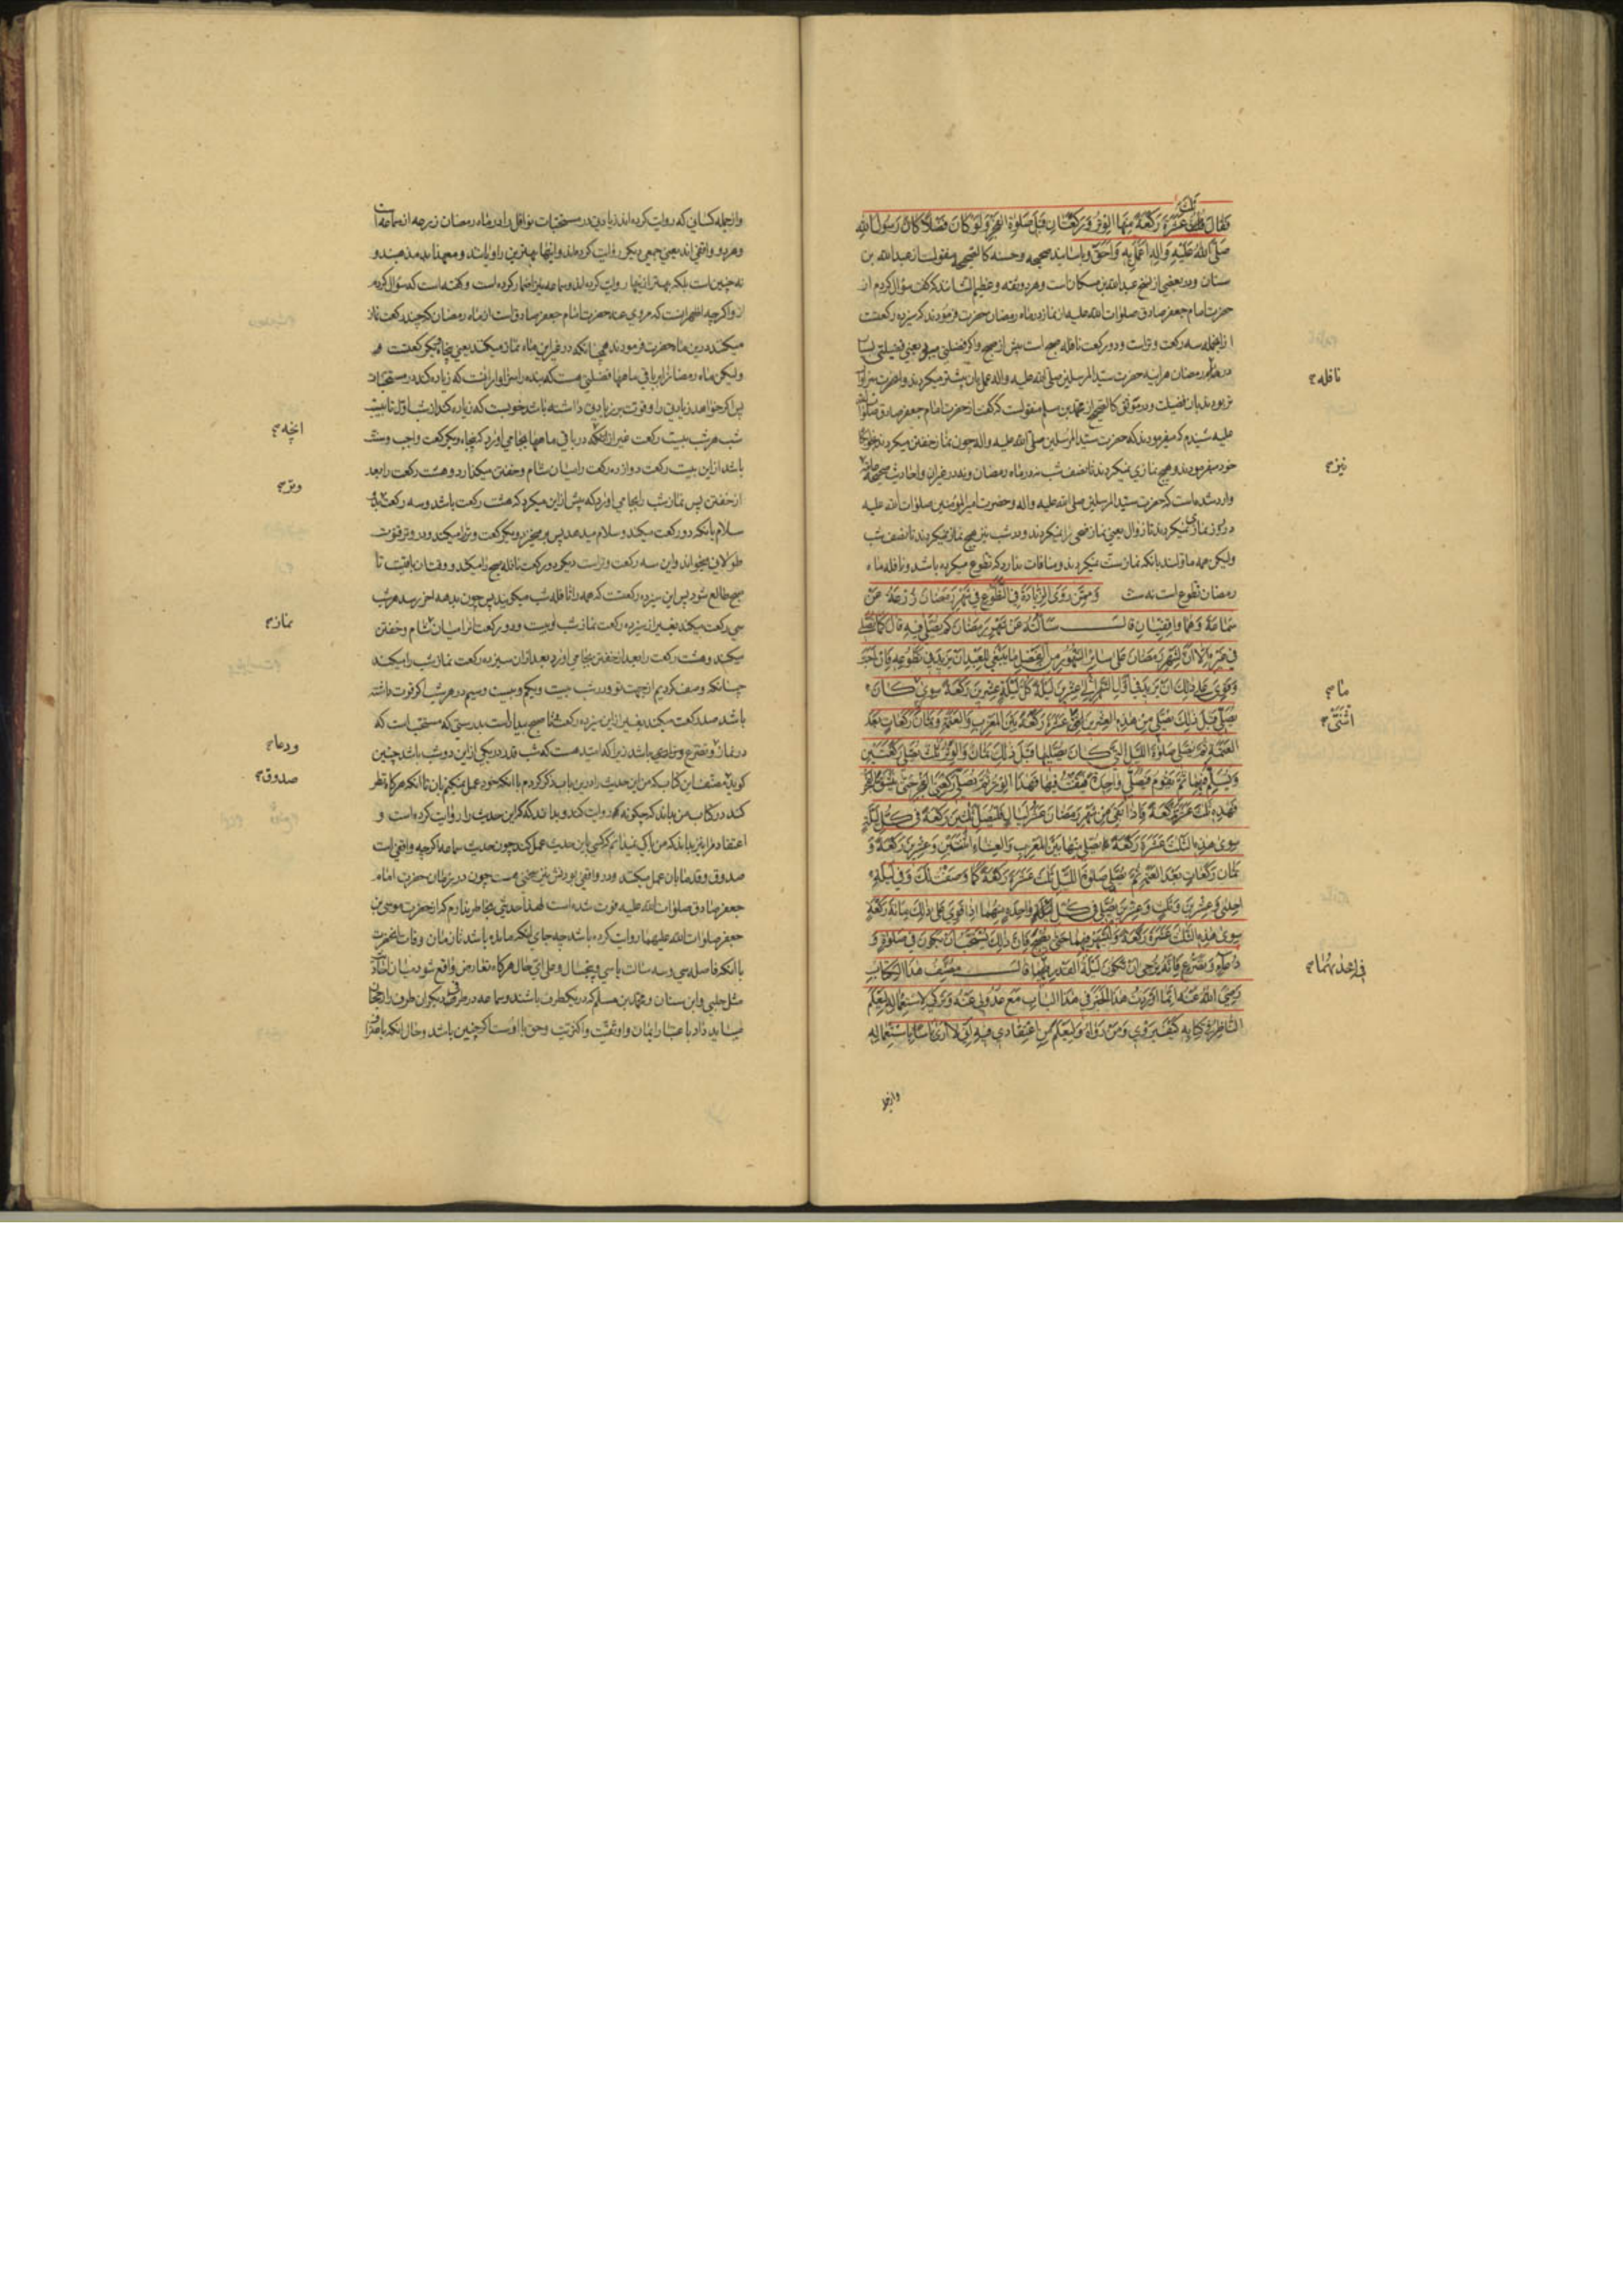 فَقَالَ ثَلٰثَ عَشْرَةَ رَكْعَةً مِنْهَا الْوِتْرُ وَرَكْعَتَانِ قَبْلَ صَلٰوةِ الْفَجْرِ وَلَوْ كَانَ فَضْلًا كَانَ رَسُولُ اللهِ
صَلَّى اللهُ عَلَيْهِ وَاٰلِهِ اَعْمَلَ بِهِ وَاَحَقَّ وباسانید صحیحه وحسنه کالصحیحه منقولست از عبدالله بن
سنان ودر بعضی از نسخ عبدالله بن مسکان است وهر دو ثقه وعظیم الشانند که گفت سؤال کردم از
حضرت امام جعفر صادق صلوات الله علیه از نماز در ماه رمضان حضرت فرمودند که سیزده رکعتست
از انجمله سه رکعت وتر است ودو رکعت نافله صبح است پیش از صبح واگر فضلی میبود یعنی فضیلتی
در ماه رمضان هر اینه حضرت سید المرسلین صلی الله علیه واله عمل بان بیشتر میکردند
نافله
بان فضیلت ودر موثق کالصحیح از محمد بن مسلم منقولست که گفت از حضرت امام جعفر صادق صلوات الله
علیه شنیدم که میفرمودند که حضرت سید المرسلین صلی الله علیه واله چون نماز خفتن میکردند
خود میفرمودند وهیچ نمازی نمیکردند تا نصف شب نه در ماه رمضان ونه در غیر ان واحادیث صحیحه
نیز
وارد شده است که حضرت سید المرسلین صلی الله علیه واله وحضرت امیر المؤمنین صلوات الله علیه
در روز نمازی نمیکردند تا زوال یعنی نماز ضحی را نمیکردند ودر شب نیز هیچ نماز نمیکردند تا نصف شب
ولیکن همه ماولند بانکه نماز سنت نمیکردند ومنافات ندارد که تطوع میکرده باشد ونافله ماه
رمضان تطوع است نه سنت وَمِمَّنْ رَوَى الزِّيَادَةَ فِي التَّطَوُّعِ فِي شَهْرِ رَمَضَانَ زُرْعَةُ عَنْ
سَمَاعَةَ وَهُمَا وَاقِفِيَّانِ قَالَ سَاَلْتُهُ عَنْ شَهْرِ رَمَضَانَ كَمْ يُصَلّٰى فِيهِ قَالَ كَمَا يُصَلّٰى
فِي غَيْرِهِ اِلَّا اَنَّ لِشَهْرِ رَمَضَانَ عَلٰى سَائِرِ الشُّهُورِ مِنَ الْفَضْلِ مَا يَنْبَغِي لِلْعَبْدِ اَنْ يَزِيدَ فِي تَطَوُّعِهِ فَاِنْ اَحَبَّ
وَقَوِيَ عَلٰى ذٰلِكَ اَنْ يَزِيدَ فِي اَوَّلِ الشَّهْرِ اِلٰى عِشْرِينَ لَيْلَةً كُلَّ لَيْلَةٍ عِشْرِينَ رَكْعَةً سِوٰى كَانَ
ما
يُصَلِّي قَبْلَ ذٰلِكَ يُصَلِّي مِنْ هٰذِهِ الْعِشْرِينَ عَشْرَةَ رَكْعَةً بَيْنَ الْمَغْرِبِ وَالْعَتَمَةِ وَثَمَانَ رَكَعَاتٍ بَعْدَ
اثنتی
الْعَتَمَةِ ثُمَّ يُصَلِّي صَلٰوةَ اللَّيْلِ الَّتِي كَانَ يُصَلِّيهَا قَبْلَ ذٰلِكَ ثَمَانَ وَالْوِتْرُ ثَلٰثٌ يُصَلِّي رَكْعَتَيْنِ
وَيُسَلِّمُ فِيهِمَا ثُمَّ يَقُومُ فَيُصَلِّي وَاحِدَةً فَيَقْنُتُ فِيهَا فَهٰذَا الْوِتْرُ ثُمَّ يُصَلِّي رَكْعَتَيِ الْفَجْرِ حَتّٰى يَنْشَقَّ الْفَجْرُ
فَهٰذِهِ ثَلٰثَ عَشْرَةَ رَكْعَةً فَاِذَا بَقِيَ مِنْ شَهْرِ رَمَضَانَ عَشْرُ لَيَالٍ فَلْيُصَلِّ ثَلٰثِينَ رَكْعَةً فِي كُلِّ لَيْلَةٍ
سِوٰى هٰذِهِ الثَّلٰثَ عَشْرَةَ رَكْعَةً يُصَلِّي مِنْهَا بَيْنَ الْمَغْرِبِ وَالْعِشَاءِ اثْنَتَيْنِ وَعِشْرِينَ رَكْعَةً وَ
ثَمَانَ رَكَعَاتٍ بَعْدَ الْعَتَمَةِ ثُمَّ يُصَلِّي صَلٰوةَ اللَّيْلِ ثَلٰثَ عَشْرَةَ رَكْعَةً كَمَا وَصَفْتُ لَكَ وَفِي لَيْلَةِ
اِحْدٰى وَعِشْرِينَ وَثَلٰثٍ وَعِشْرِينَ يُصَلِّي فِي كُلِّ وَاحِدَةٍ مِنْهُمَا اِذَا قَوِيَ عَلٰى ذٰلِكَ مِائَةَ رَكْعَةٍ
سِوٰى هٰذِهِ الثَّلٰثَ عَشْرَةَ رَكْعَةً وَلْيَسْهَرْ فِيهِمَا حَتّٰى يُصْبِحَ فَاِنَّ ذٰلِكَ يُسْتَحَبُّ اَنْ يَكُونَ فِي صَلٰوةٍ وَ
دُعَاءٍ وَتَضَرُّعٍ فَاِنَّهُ يُرْجٰى اَنْ تَكُونَ لَيْلَةُ الْقَدْرِ قَالَ مُصَنِّفُ هٰذَا الْكِتَابِ
فی احدیهما
رَضِيَ اللهُ عَنْهُ اِنَّمَا اَوْرَدْتُ هٰذَا الْخَبَرَ فِي هٰذَا الْبَابِ مَعَ عُدُولِي عَنْهُ وَتَرْكِي لِاسْتِعْمَالِهِ لِيَعْلَمَ
النَّاظِرُ فِي كِتَابِي كَيْفَ يُرْوٰى وَمَنْ رَوَاهُ وَلِيَعْلَمَ مِنِ اعْتِقَادِي فِيهِ اَنِّي لَا اَرٰى بَاْسًا بِاسْتِعْمَالِهِ
وازجمله
وازجمله کسانی که روایت کرده اند زیادتی در مستحبات نوافل را در ماه رمضان زرعه از سماعه است
وهر دو واقفی اند یعنی جمعی دیگر روایت کرده اند واینها بهترین راویانند ومعهذا بد مذهبند و
نه چنین است بلکه بهتر از اینها روایت کرده اند وسماعه نیز اضمار کرده است وگفته است که سؤال کردم
از او اگرچه اظهر انست که مروی عنه حضرت امام جعفر صادق است از ماه رمضان که چند رکعت نماز
میکنند در این ماه حضرت فرمودند همچنانکه در غیر این ماه نماز میکنند یعنی پنجاه ویک رکعتست
ولیکن ماه رمضان را بر باقی ماهها فضلی هست که بنده را سزاوار انست که زیاده کند در مستحبات
پس اگر خواهد زیادتی را وقوت بر زیادتی داشته باشد خوبست که زیاده کند از شب اول تا بیست
شب هر شب بیست رکعت غیر از در باقی ماهها بجا می اورد که پنجاه ویک رکعت واجب وسنت
انچه
باشد از این بیست رکعت دوازده رکعت را میان شام وخفتن میگذارد وهشت رکعت را بعد
از خفتن پس نماز شب را بجا می اورد که پیش از این میکرد که هشت رکعت باشد وسه رکعت
وتر
سلام بانکه دو رکعت میکند وسلام میدهد پس بر میخیزد ویک رکعت وتر را میکند ودر وتر قنوت
طولانی میخواند واین سه رکعت وتر است دیگر دو رکعت نافله صبح را میکند ووقتان باقیست تا
صبح طالع شود پس این سیزده رکعتست که همه را نافله شب میگویند پس چون بدهه اخر رسد هر شب
سی رکعت میکند بغیر از سیزده رکعت نماز شب وبیست ودو رکعت را میان شام وخفتن
نماز
میکند وهشت رکعت را بعد از خفتن بجا می اورد بعد ازان سیزده رکعت نماز شب را میکند
چنانکه وصف کردیم از جهت تو ودر شب بیست ویکم وبیست وسیم در هر شب اگر قوت داشته
باشد صد رکعت میکند بغیر از این سیزده رکعت وتا صبح بیدار است بدرستی که مستحب است که
در نماز وتضرع وزاری باشد زیرا که امید هست که شب قدر در یکی از این دو شب باشد چنین
ودعا
گوید مصنف این کتاب که من این حدیث را درین باب ذکر کردم با انکه خود عمل نمیکنم بان تا انکه هرکه نظر
صدوق
کند در کتاب من بداند که چگونه روایت کند وبداند که که این حدیث را روایت کرده است و
اعتقاد مرا نیز بداند که من باکی نمیدانم که کسی باین حدیث عمل کند چون حدیث سماعه اگرچه واقفی است
صدوق وقدما بان عمل میکنند ودر واقفی بودنش نیز سخنی هست چون در زمان حضرت امام
جعفر صادق صلوات الله علیه فوت شده است لهذا حدیثی بخاطر ندارم که از حضرت موسی بن
جعفر صلوات الله علیهما روایت کرده باشد چه جای انکه مانده باشد تا زمان وفات انحضرت
با انکه فاصله سی وسه سالست یا سی وپنجسال وعلی ای حال هرگاه تعارض واقع شود میان احادیث
مثل حلبی وابن سنان ومحمد بن مسلم که در یکطرف باشند وسماعه در طرف دیگر ان طرف را رجحان
میباید داد باعتبار ایمان واوثقیت واکثریت وحق با اوست اگر چنین باشد وحال انکه